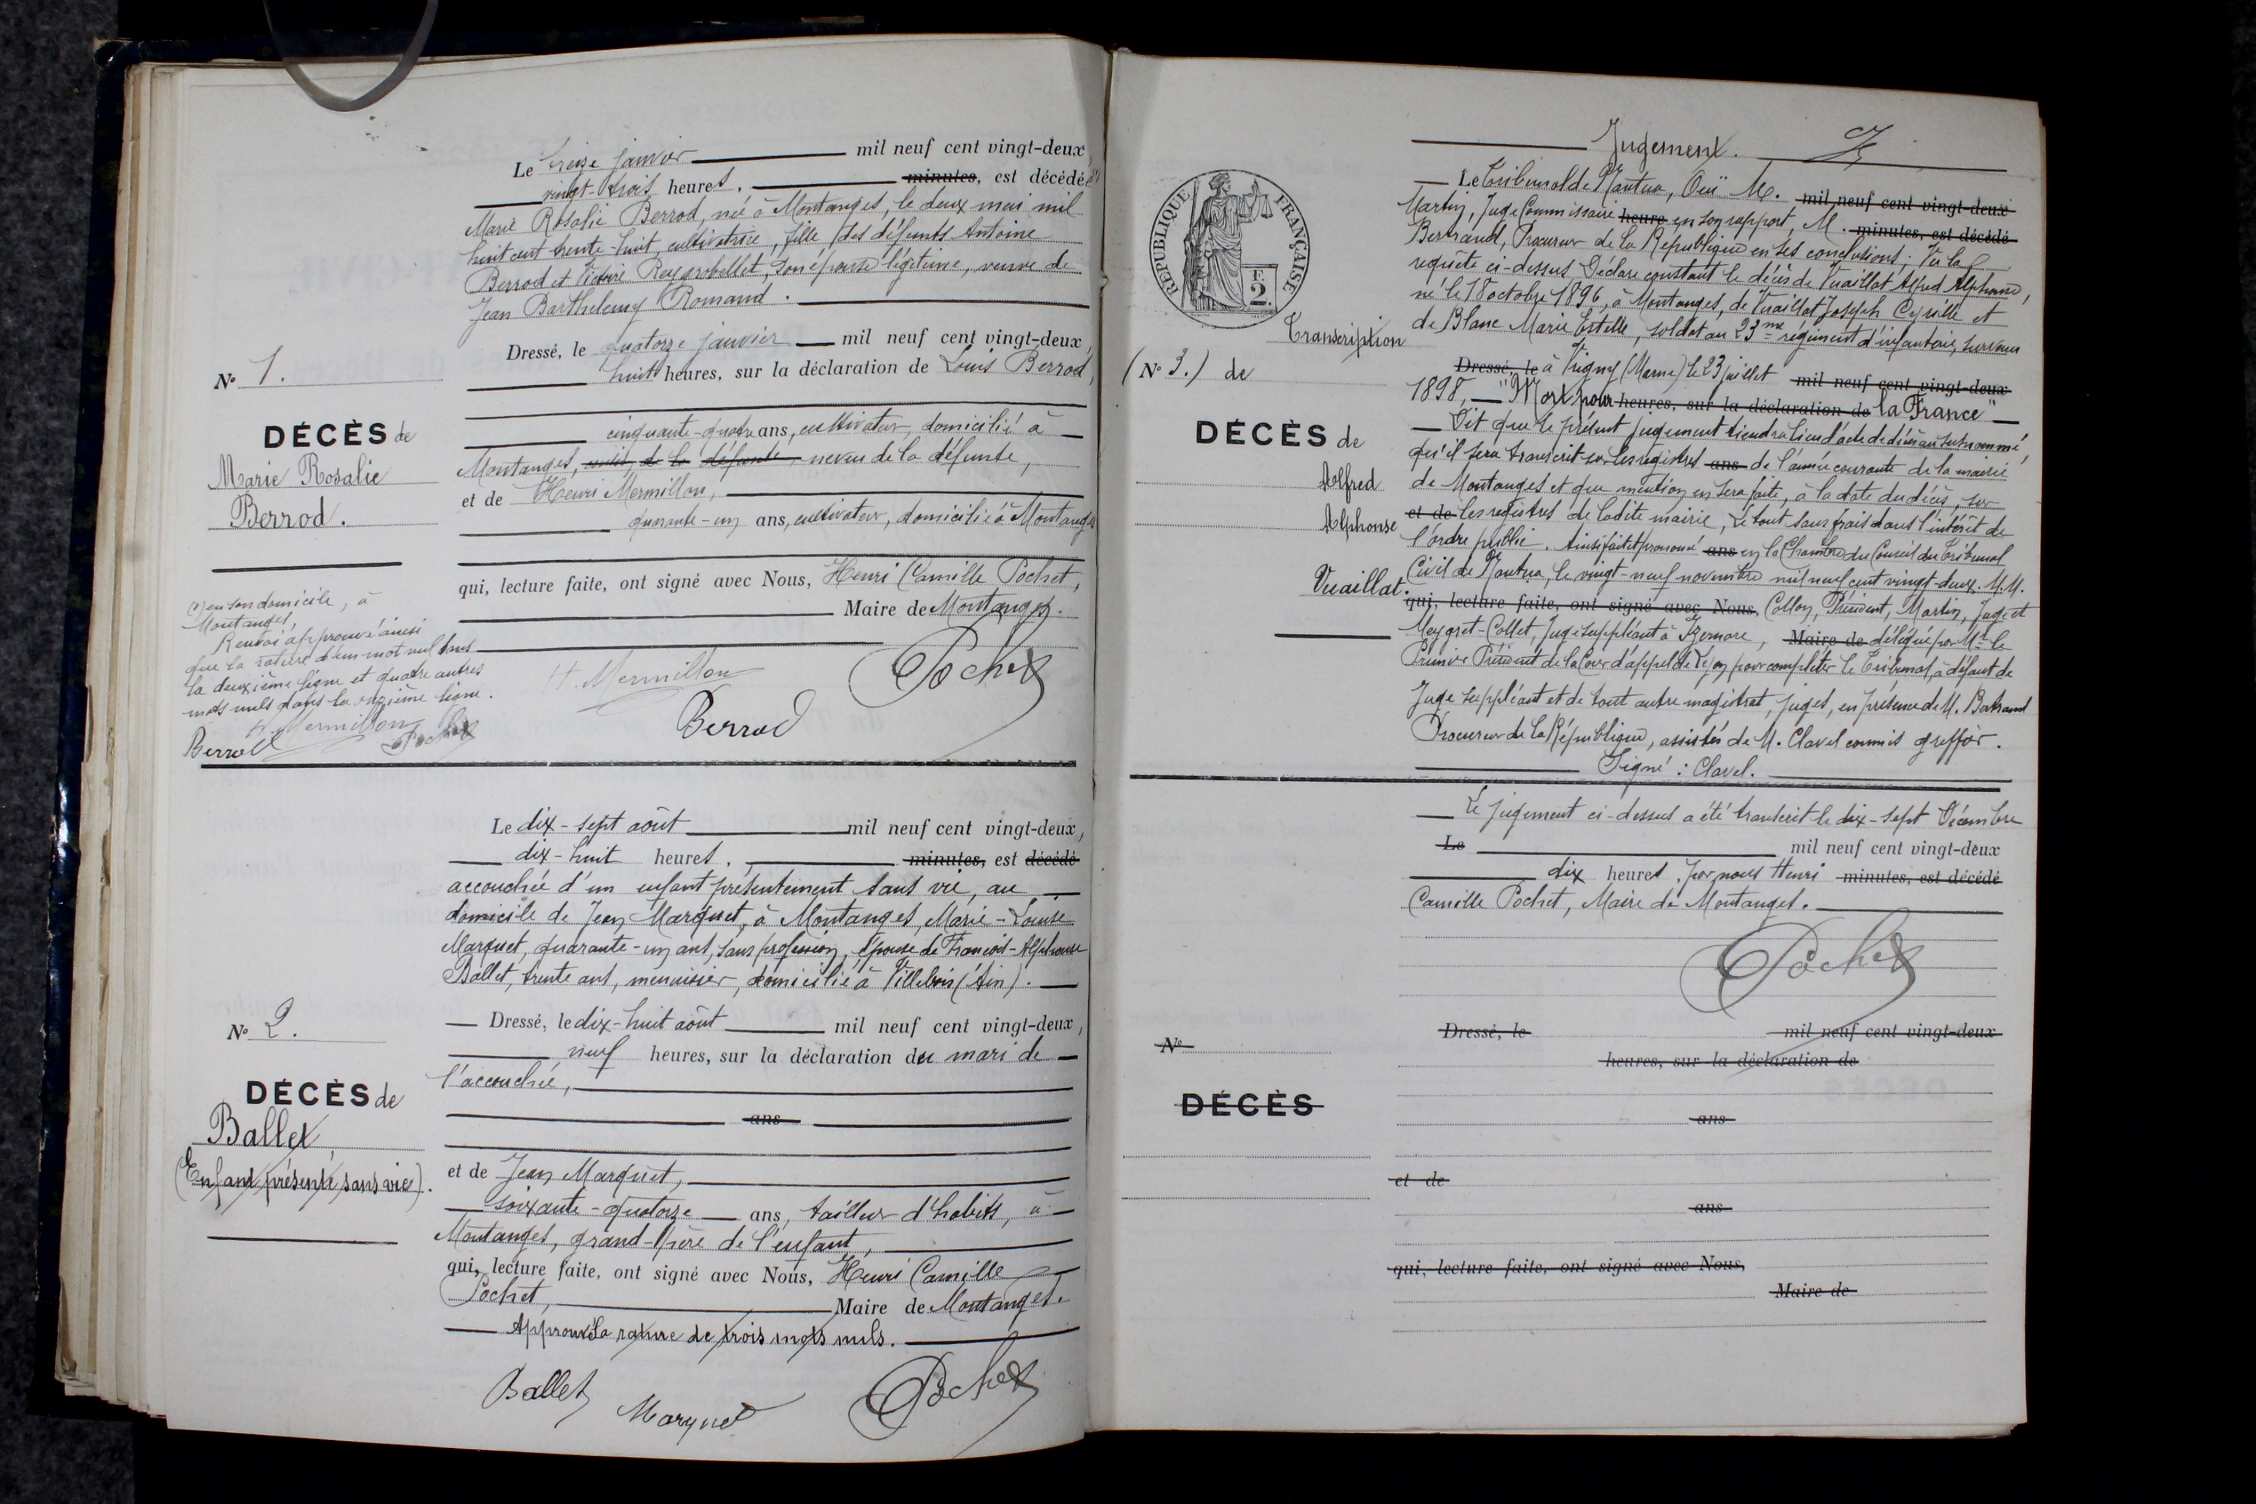 Le treize janvier mil neuf cent vingt-deux
vingt-trois heures, minutes, est décédée
Marie Rosalie Berrod, née à Montanges, le deux mai mil
huit cent trente-huit, cultivatrice, fille des défunts Antoine
Berrod et Victoire Reygrobellet, son épouse légitime, veuve de
Jean Barthelemy Romand.
Dressé, le quatorze janvier mil neuf cent vingt-deux,
huit heures, sur la déclaration de Louis Berrod,
cinquante-quatre ans, cultivateur, domicilié à
Montanges, de la défunte neveu de la défunte,
et de Henri Mermillon,
quarante-un ans, cultivateur, domicilié à Montanges
qui, lecture faite, ont signé avec Nous, Henri Camille Pochet,
Maire de Montanges.
H. Mermillon
Pochet
Berrod
No 1.
DÉCÈS de
Marie Rosalie
Berrod.
(1) en son domicile, à
Montanges,
Renvoi approuvé ainsi
que la rature d'un mot nul dans
la deuxième ligne et quatre autres
mots nuls dans la onzième ligne.
H. Mermillon
Berrod Pochet
Le dix-sept août mil neuf cent vingt-deux,
dix-huit heures, minutes, est décédé
accouchée d'un enfant présentement sans vie, au
domicile de Jean Marquet, à Montanges, Marie-Louise
Marquet, quarante-un ans, sans profession, épouse de François-Alphonse
Ballet, trente ans, menuisier, domicilié à Villebois (Ain).
No 2.
Dressé, le dix-huit août mil neuf cent vingt-deux,
neuf heures, sur la déclaration du mari de
l'accouchée,
ans
DÉCÈS de
Ballet
(Enfant présenté sans vie).
et de Jean Marquet,
soixante-quatorze ans, tailleur d'habits, à
Montanges, grand-père de l'enfant,
qui, lecture faite, ont signé avec Nous, Henri Camille
Pochet, Maire de Montanges.
Approuvé la rature de trois mots nuls.
Ballet
Marquet
Pochet
RÉPUBLIQUE FRANÇAISE
F.
2.
Transcription
(No 3.) de
DÉCÈS de
Alfred
Alphonse
Vuaillat.
Jugement.
Le Tribunal de Nantua, Ouï M. mil neuf cent vingt-deux
Martin, Juge Commissaire heure en son rapport, M. minutes, est décédé
Bertrand, Procureur de la République en ses conclusions; Vu la
requête ci-dessus Déclare constant le décès de Vuaillat Alfred Alphonse,
né le 18 octobre 1896, à Montanges, de Vuaillat Joseph Cyrille et
de Blanc Marie Estelle, soldat au 23me régiment d'infanterie, survenu
Dressé, le à Vrigny (Marne) le 23 juillet mil neuf cent vingt-deux
1898, "Mort pour heures, sur la déclaration de la France"
Dit que le présent jugement tiendra lieu d'acte de décès au susnommé,
qu'il sera transcrit sur les registres ans de l'année courante de la mairie
de Montanges et que mention en sera faite, à la date du décès, sur
et de les registres de ladite mairie, Le tout sans frais dans l'intérêt de
l'ordre public. Ainsi fait et prononcé ans en la Chambre du Conseil du Tribunal
Civil de Nantua, le vingt-neuf novembre mil neuf cent vingt-deux. M.M.
qui, lecture faite, ont signé avec Nous, Collon, Président, Martin, Juge et
Meygret-Collet, Juge suppléant à Izernore, Maire de délégué par Mr le
Premier Président de la Cour d'appel de Lyon pour compléter le Tribunal, à défaut de
Juge suppléant et de tout autre magistrat, juges, en présence de M. Bertrand
Procureur de la République, assistés de M. Clavel commis greffier.
Signé: Clavel.
Le jugement ci-dessus a été transcrit le dix-sept Décembre
Le mil neuf cent vingt-deux
dix heures, par nous Henri minutes, est décédé
Camille Pochet, Maire de Montanges.
Pochet
No
DÉCÈS
Dressé, le mil neuf cent vingt-deux
heures, sur la déclaration de
ans
et de
ans
qui, lecture faite, ont signé avec Nous,
Maire de